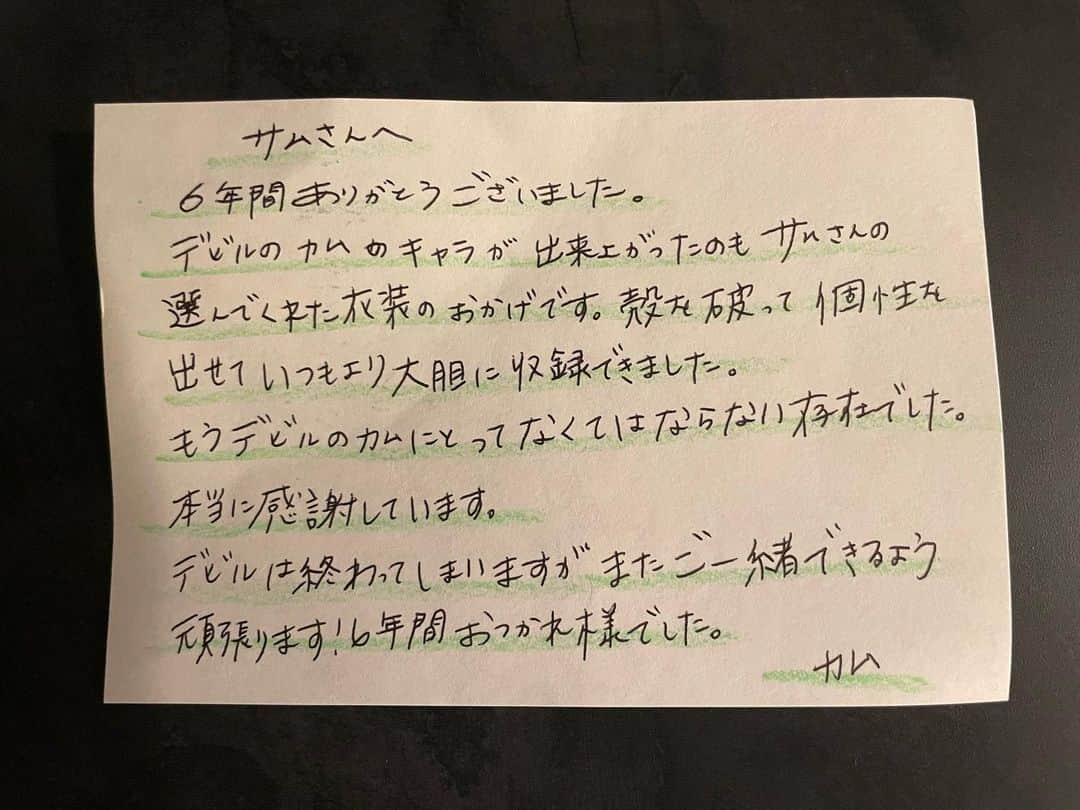 サムさんへ
6年間ありがとうございました。
デビルのカムのキャラが出来上がったのもサムさんの
選んでくれた衣装のおかげです。殻を破って個性を
出せていつもより大胆に収録できました。
もうデビルのカムにとってなくてはならない存在でした。
本当に感謝しています。
デビルは終わってしまいますがまたご一緒できるよう
頑張ります!6年間おつかれ様でした。
カム